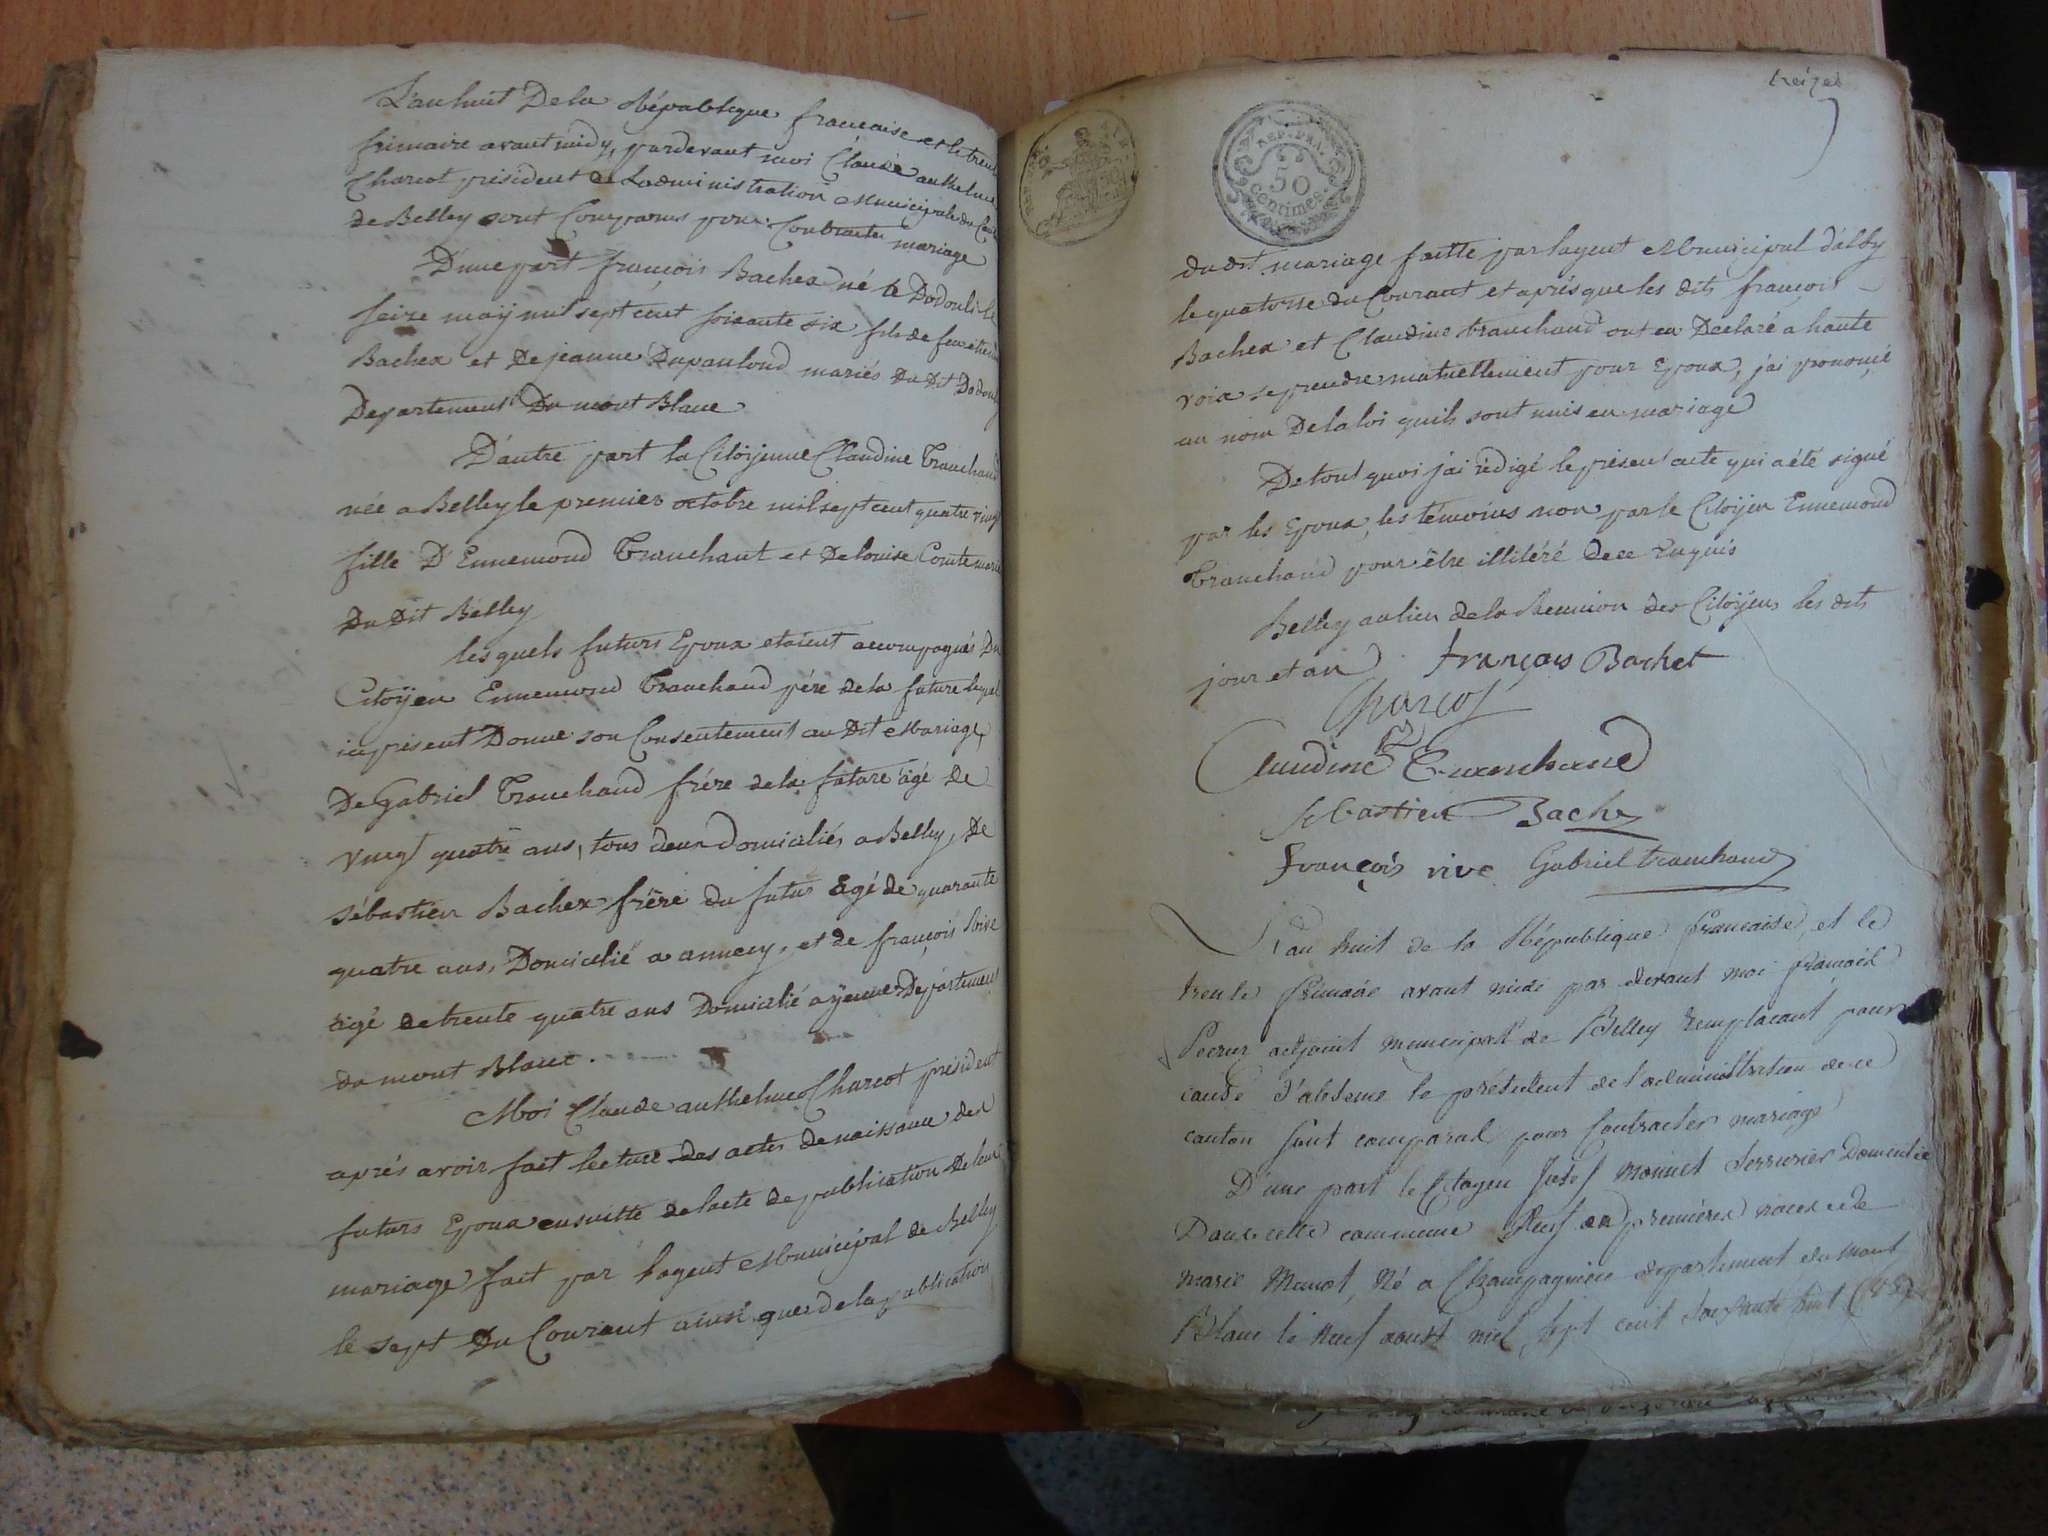 L'an huit De la République francaise et le trente
frimaire avant midy, pardevant moi Claude anthelme
Charcot président de Ladministration Municipale du Canton
de Belley sont Comparus pour Contracter mariage
D'une part françois Bachex né a Dodouls le
seize may mil sept cent soixante six fils de feu
Bachex et De jeanne Dupanloud mariés Du Dit
Département Du mont Blanc
D'autre part la Citoÿenne Claudine Tranchand
née a Belley le premier octobre mil sept cent quatre vingt
fille D'Ennemond Tranchant et De louise Comte mariés
Du Dit Belley
les quels futurs Epoux etoient accompagnés Du
Citoÿen Ennemond Tranchand pére de la future lequel
ici présent Donne son Consentement au Dit Mariage,
De Gabriel Tranchand frére de la future âgé de
vingt quatre ans, tous deux Domiciliés a Belley, De
Sébastien Bachex frére du futur âgé de quarante
quatre ans, Domicilié a annecy, et de françois Rive
âgé de trente quatre ans Domicilié a ÿenne Département
du mont Blanc.
Moi Claude anthelme Charcot président
aprés avoir fait lecture des actes de naissance des
futurs Epoux ensuitte de lacte de publication De leur
mariage fait par lagent Municipal de Belley
le sept Du Courant ainsi que de la publication
treize
REP. FRA.
50
centimes
dudit mariage faitte par lagent Municipal d'alby
le quatorse du Courant et aprés que les dits françois
Bachex et Claudine tranchand ont eu Déclaré a haute
voix se prendre mutuellement pour Epoux, j'ai prononcé
au nom De la loi quils sont unis en mariage
De tout quoi j'ai rédigé le présent acte qui a été signé
par les Epoux, les témoins non par le Citoÿen Ennemond
Tranchand pour être illitéré de ce Enquis
Belley au lieu de la Reunion des Citoÿens les dits
jour et an françois Bachet
Charcot
Claudine Tranchand
Sebastien Bachex
françois rive Gabriel tranchand
L'an huit de la République francaise, et le
trente frimaire avant midi par devant moi
adjoint municipal de Belley remplacant pour
cause d'absence le président de l'administration de ce
canton sont comparus pour contracter mariage
D'une part le Citoyen Josef monnet Serrurier Domicilié
Dans cette commune veuf en premières noces de
marie Né a Champagnieu département du Mont
Blanc le neuf aoust mil sept cent soixante huit